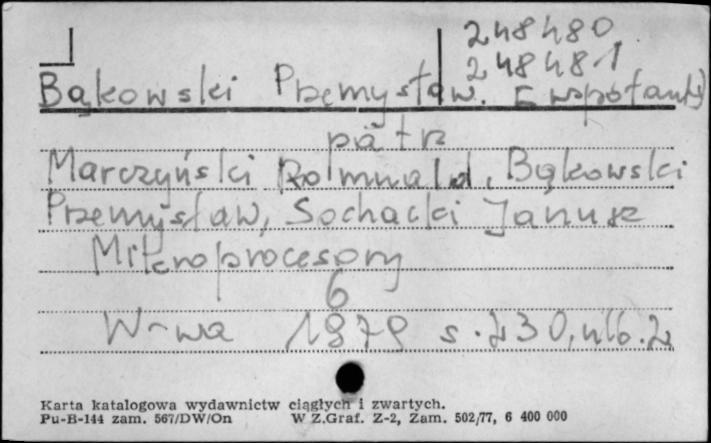 248480
248481
Bąkowski Przemysław. [współaut]
patrz
Marczyński Romuald, Bąkowski
Przemysław, Sochacki Janusz
Mikroprocesory
6
W-wa 1979 s. 230, nlb. 2
Karta katalogowa wydawnictw ciągłych i zwartych.
Pu-B-144 zam. 567/DW/On W Z.Graf. Z-2, Zam. 502/77, 6 400 000